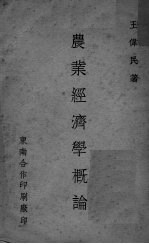 王偉民著
農業經濟學概論
東南合作印刷廠印